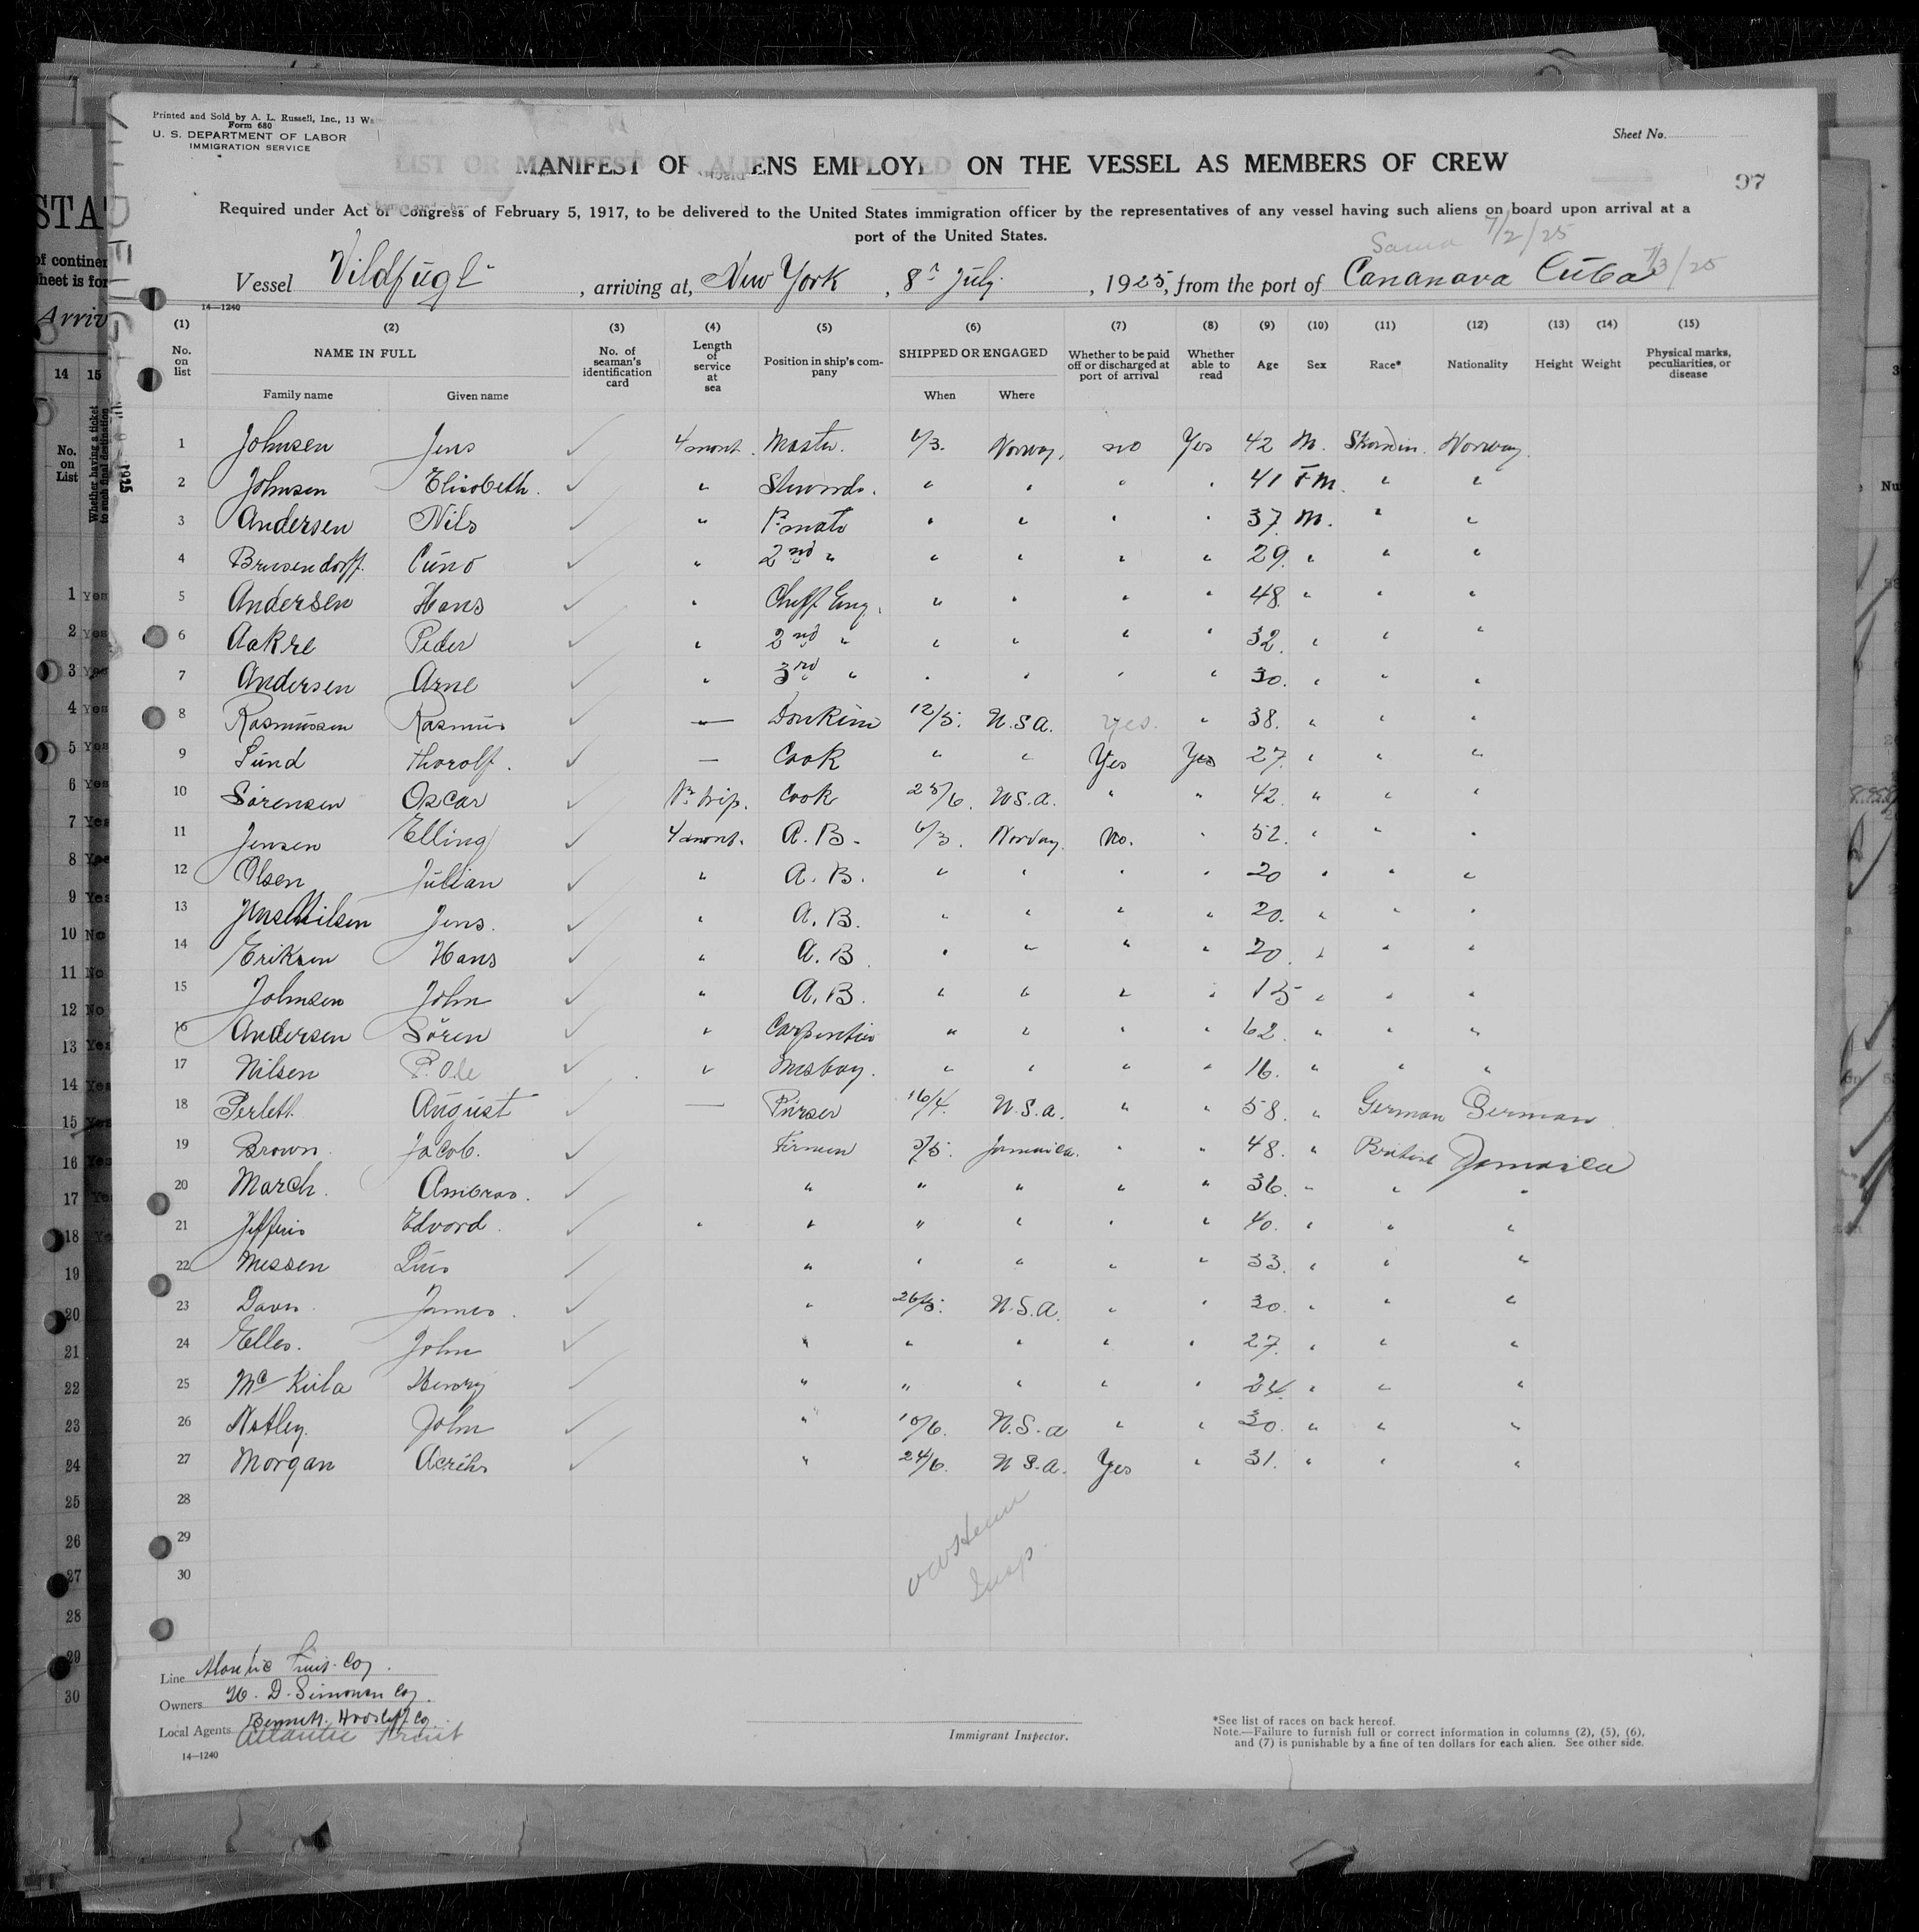 Printed and Sold by A. L. Russell, Inc., 13 Wa
Form 680
U. S. DEPARTMENT OF LABOR
IMMIGRATION SERVICE
Sheet No.
LIST OR MANIFEST OF ALIENS EMPLOYED ON THE VESSEL AS MEMBERS OF CREW
97
Required under Act of Congress of February 5, 1917, to be delivered to the United States immigration officer by the representatives of any vessel having such aliens on board upon arrival at a
port of the United States.
7/2/25
Vessel Vildfugl, arriving at, New York, 8 July, 1925, from the port of Cananova Cuba 7/3/25
14—1240
(1) (2) (3) (4) (5) (6) (7) (8) (9) (10) (11) (12) (13) (14) (15)
No. on list NAME IN FULL No. of seaman's identification card Length of service at sea Position in ship's company SHIPPED OR ENGAGED Whether to be paid off or discharged at port of arrival Whether able to read Age Sex Race* Nationality Height Weight Physical marks, peculiarities, or disease
Family name Given name When Where
1 Johnsen Jens ✓ 4 mont. Master. 6/3. Norway, no Yes 42 M. Skandin. Norway.
2 Johnsen Elisobeth. ✓ " " " " " 41 Fm. " "
3 Andersen Nils ✓ " " " " " 37. M. " "
4 Cuno ✓ " 2nd " " " " " 29. " " "
5 Andersen Hans ✓ " Cheff. Eng. " " " " 48. " " "
6 Aakre Peder ✓ " 2nd " " " " " 32. " " "
7 Andersen Arne ✓ " 3rd " " " " " 30. " " "
8 Rasmussen Rasmus ✓ — 12/5. U.S.A. yes. " 38. " " "
9 Lund Thorolf. ✓ — Cook " " Yes Yes 27. " " "
10 Sörensen Oscar ✓ trip. Cook 25/6. U.S.A. " " 42. " " "
11 Jensen Elling ✓ 4 mont. A. B. 6/3. Norway. No. " 52. " " "
12 Olsen Julian ✓ " A. B. " " " " 20 " " "
13 Jens. ✓ " A. B. " " " " 20. " " "
14 Eriksen Hans ✓ " A. B. " " " " 20. " " "
15 Johnsen John ✓ " A. B. " " " " 15 " " "
16 Andersen Sören ✓ " Carpentier " " " " 62. " " "
17 Nilsen P. Ole ✓ " Mesboy. " " " " 16. " " "
18 Perlett August ✓ — Purser 16/4. U.S.A. " " 58. " German German
19 Brown. Jacob. ✓ Firmen Jamaica. " " 48. " British Jamaica
20 March. Ambros. ✓ " " " " " 36. " " "
21 Edvord. ✓ " " " " " 40. " " "
22 Messen ✓ " " " " " 33. " " "
23 James. ✓ " 26/5. U.S.A. " " 30. " " "
24 Elles. John ✓ " " " " " 27. " " "
25 Henry ✓ " " " " " 24. " " "
26 Notley. John ✓ " 10/6. U.S.A " " 30. " " "
27 Morgan ✓ " 24/6. U.S.A. Yes " 31. " " "
28
29
30
Insp.
Line Atlantic Fruit Coy.
Owners D. Simonsen Coy.
Local Agents Bennett. Co.
Atlantic Fruit
14—1240
Immigrant Inspector.
*See list of races on back hereof.
Note.—Failure to furnish full or correct information in columns (2), (5), (6),
and (7) is punishable by a fine of ten dollars for each alien. See other side.